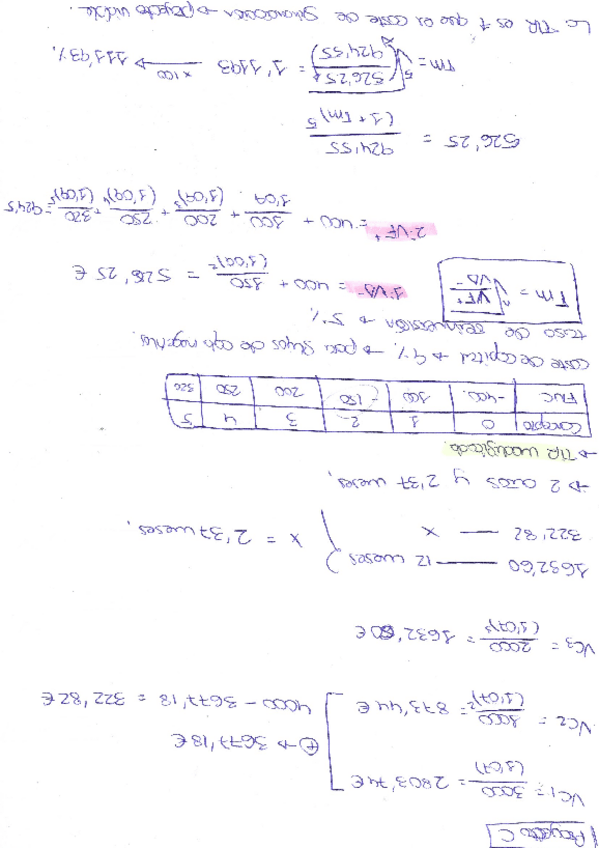 Proyecto C
VC1 = 3000/(1'07) = 2803,74€
⊕ → 3677,18€
VC2 = 1000/(1'07)² = 873,44€
4000 - 3677,18 = 322,82€
VC3 = 2000/(1'07)³ = 1632,60€
1632,60 — 12 meses
322,82 — x
x = 2,37 meses.
→ 2 años y 2,37 meses.
→ TIR modificada.
Concepto 0 1 2 3 4 5
FNC -400 100 -150 200 250 320
coste de capital → 9% → para flujos de caja negativos
tasa de reinversión → 5%
rm = ⁿ√(VF⁺/VA⁻)
1º VA⁻ = 400 + 150/(1'09)² = 526,25€
2º VF⁺ = 400 + 100/1'09 + 200/(1'09)³ + 250/(1'09)⁴ + 320/(1'09)⁵ = 924,5
526,25 = 924,55/(1+rm)⁵
rm = ⁵√(526,25/924,55) = 1,1193 —x100→ 111,93%.
La TIR es + que el coste de financiación → proyecto viable.